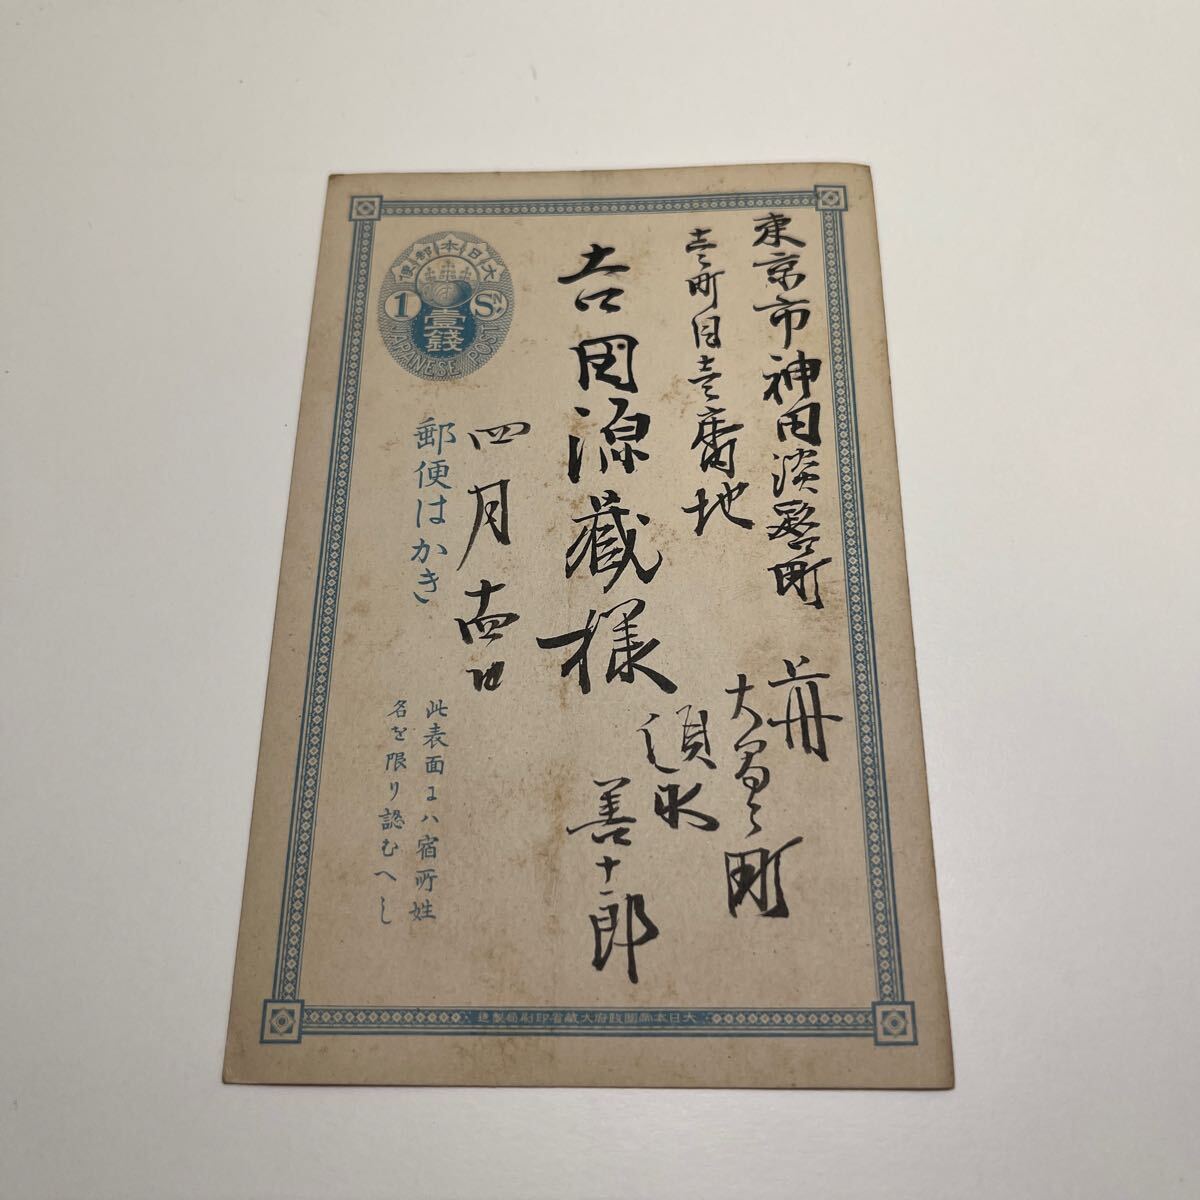 東京市神田淡路町
壱町目壱番地
吉田源蔵様
四月十四日
上州
大間々町
須永
善十郎
大日本郵便
1 Sᴺ
壹錢
JAPANESE POST
郵便はかき
此表面にハ宿所姓
名を限り認むへし
大日本帝國政府大蔵省印刷局製造